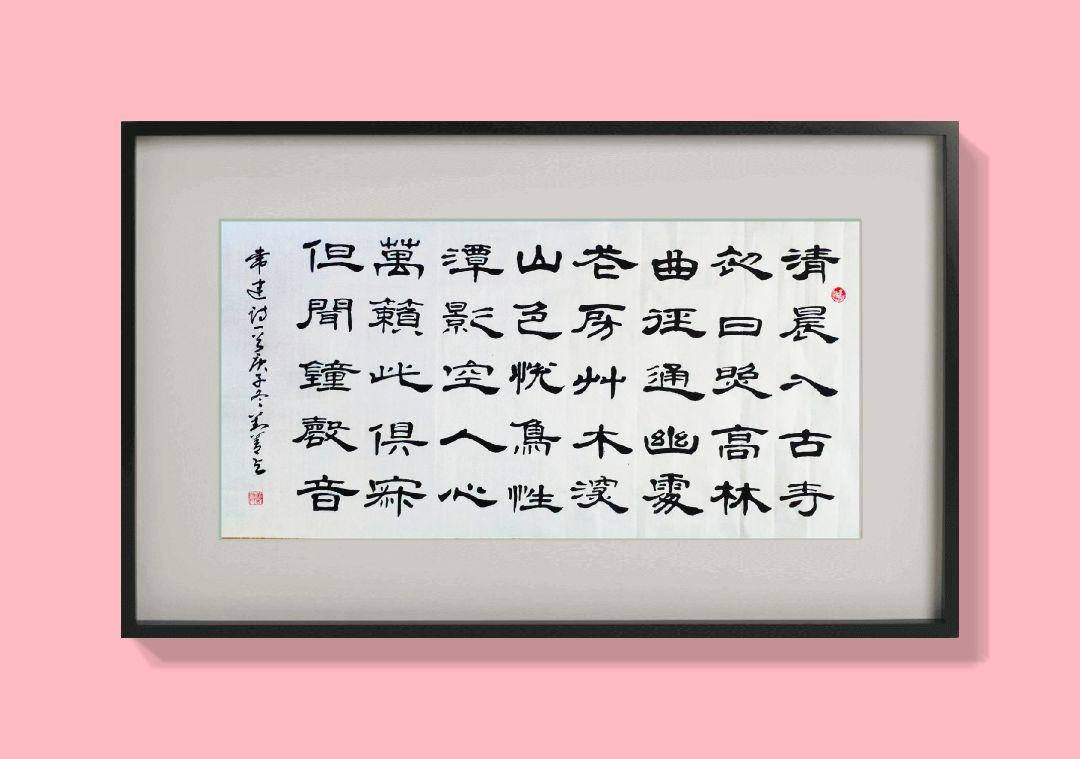 清晨入古寺
初日照高林
曲徑通幽處
花房艸木深
山色悅鳥性
潭影空人心
萬籟此俱寂
但聞鐘磬音
常建詩一首庚子冬